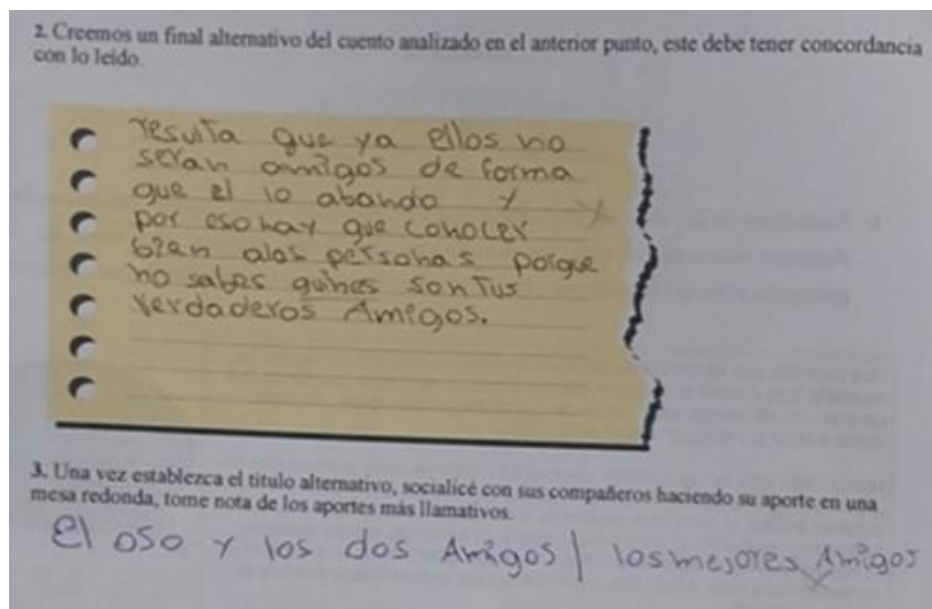 2. Creemos un final alternativo del cuento analizado en el anterior punto, este debe tener concordancia
con lo leído.
resulta que ya ellos no
seran amigos de forma
que el lo abando y
por eso hay que conocer
bien alas personas porque
no sabes quines son tus
verdaderos Amigos.
3. Una vez establezca el titulo alternativo, socialicé con sus compañeros haciendo su aporte en una
mesa redonda, tome nota de los aportes más llamativos.
El oso y los dos Amigos | los mejores Amigos